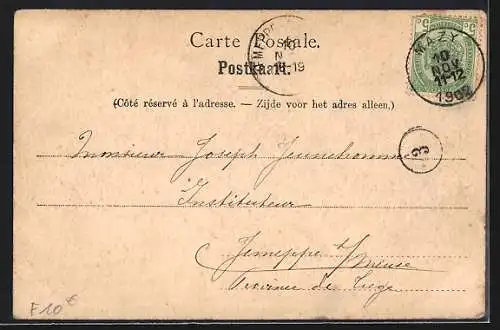 Carte Postale.
Postkaart.
(Côté réservé à l'adresse. — Zijde voor het adres alleen.)
JEMEPPE
10
N
18-19
5 5
MAZY
10
NOV
11-12
1902
3
Monsieur Joseph Jeunehomme
Instituteur
Jemeppe s/ Meuse
Province de Liege
F10€